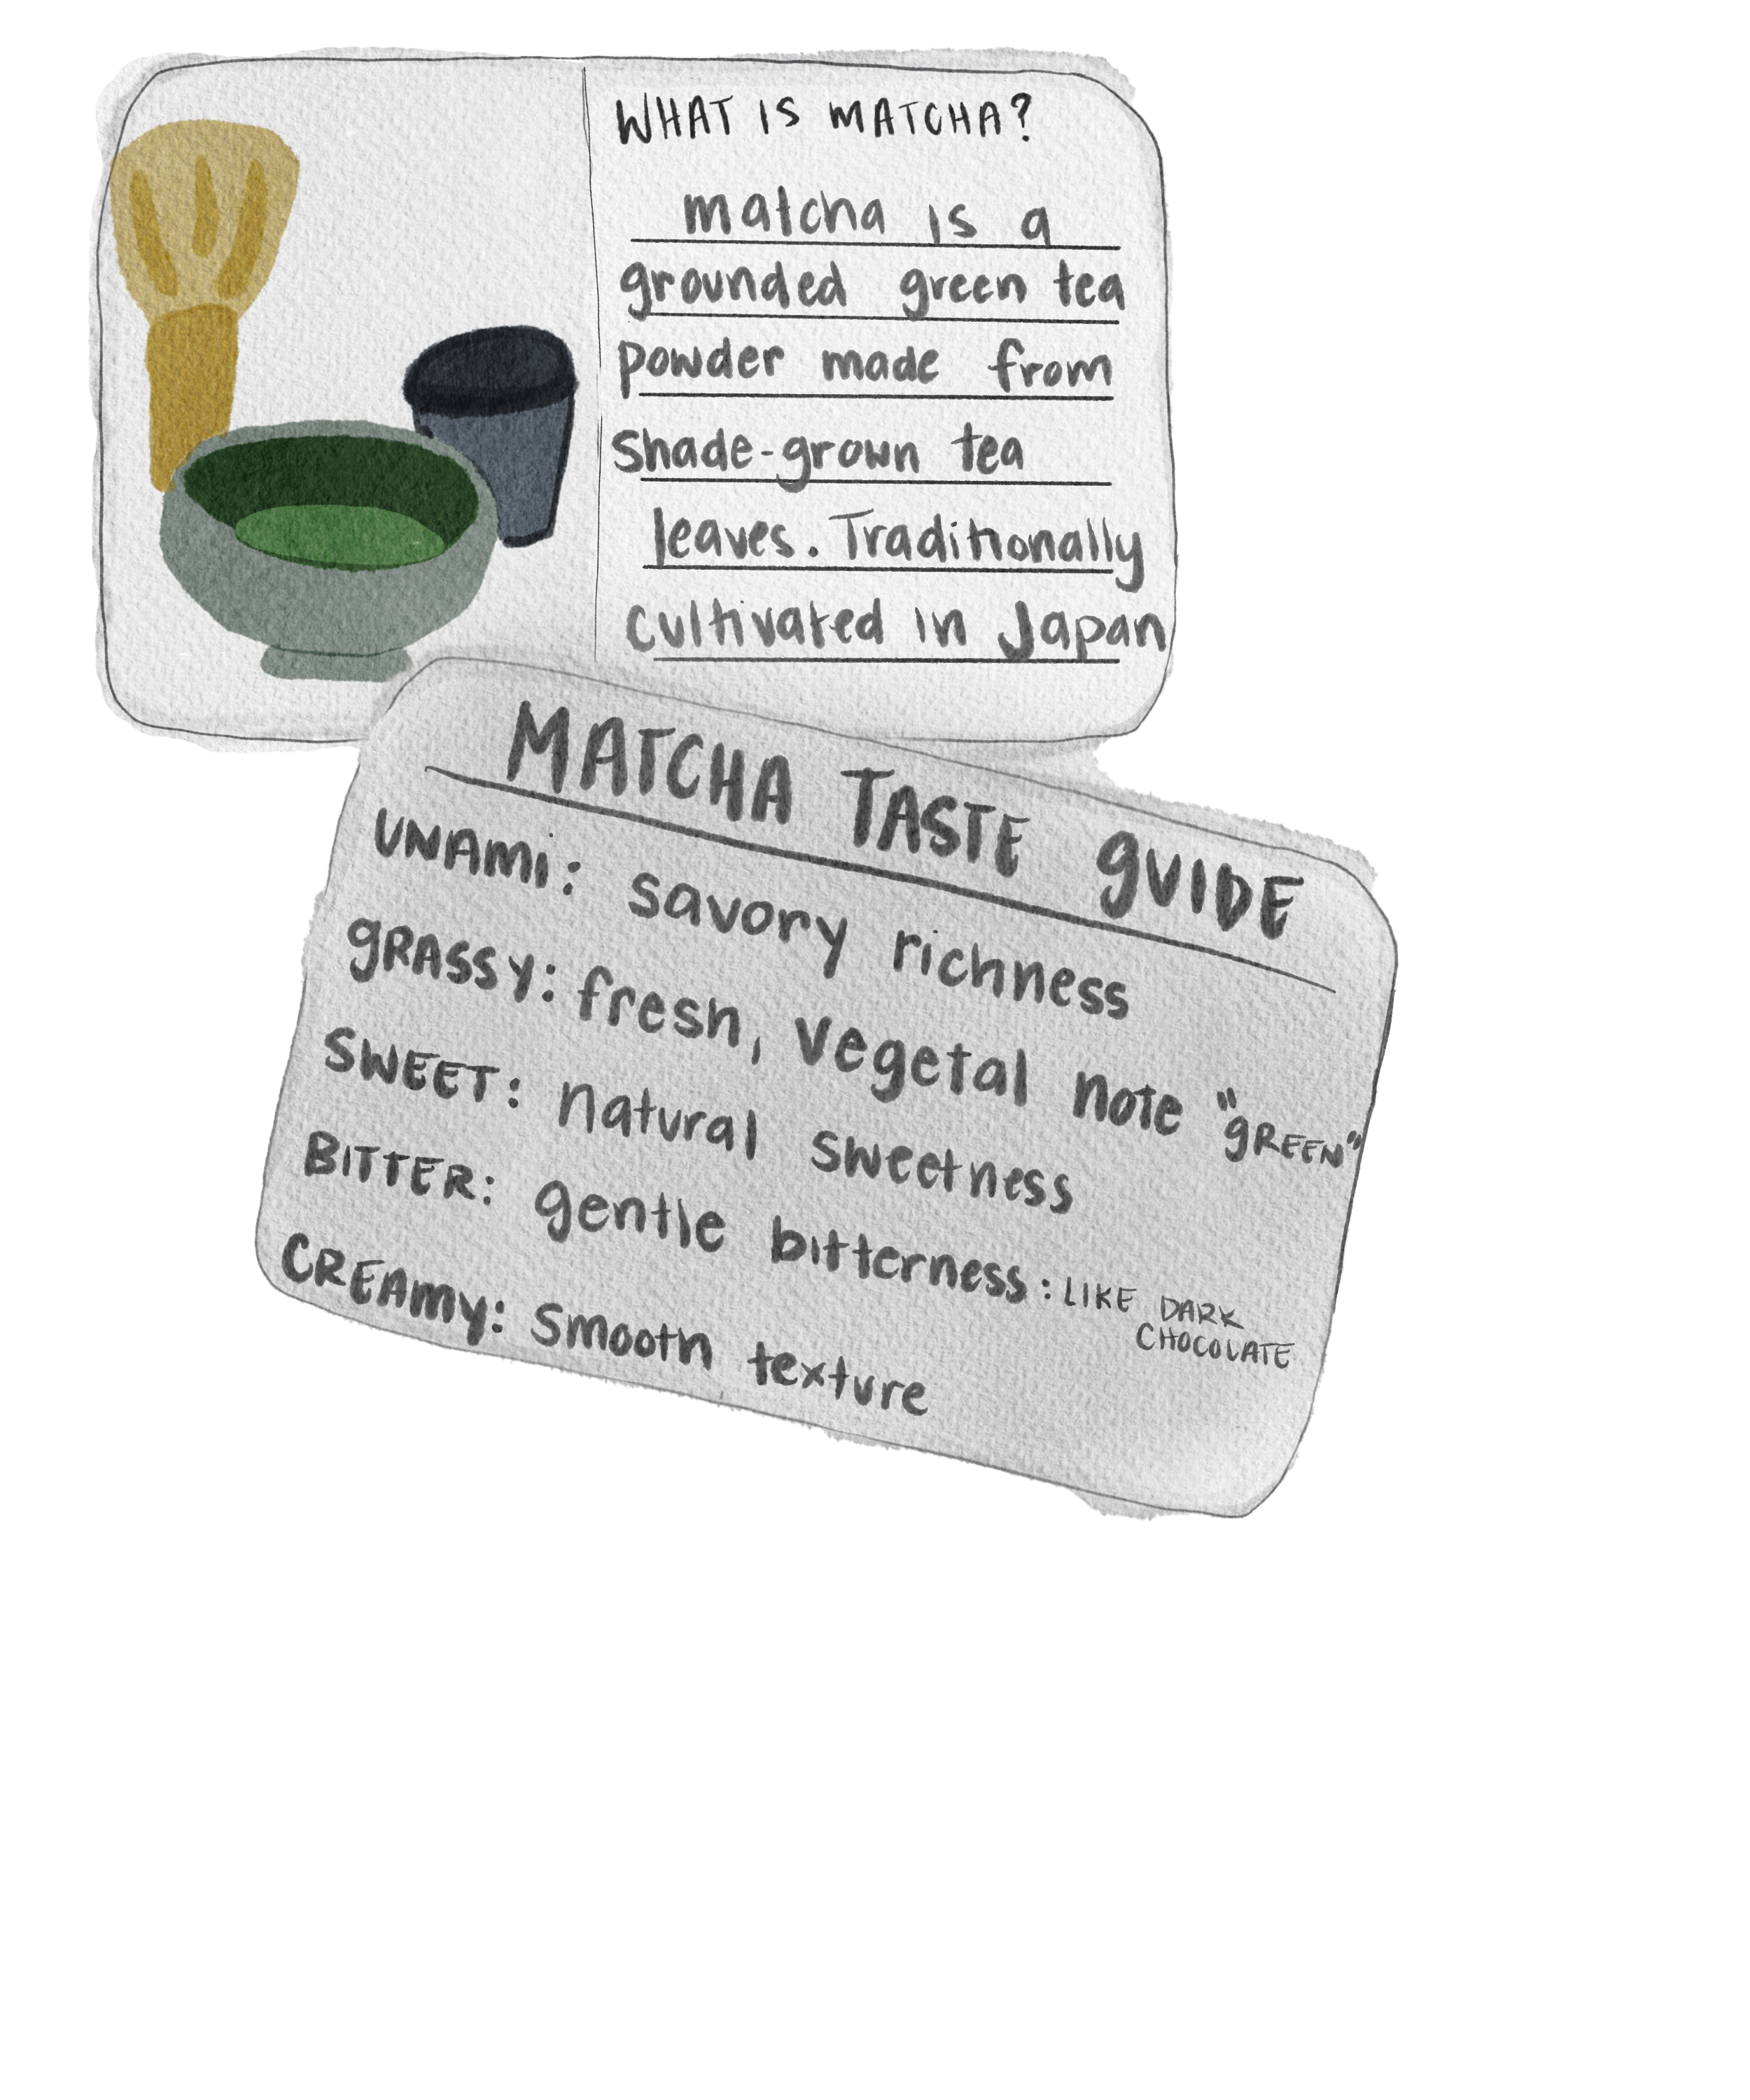 WHAT IS MATCHA?
matcha is a
grounded green tea
powder made from
shade-grown tea
leaves. Traditionally
cultivated in Japan
MATCHA TASTE GUIDE
UNAMI: savory richness
GRASSY: fresh, vegetal note "GREEN"
SWEET: natural sweetness
BITTER: gentle bitterness: LIKE DARK
CHOCOLATE
CREAMY: smooth texture